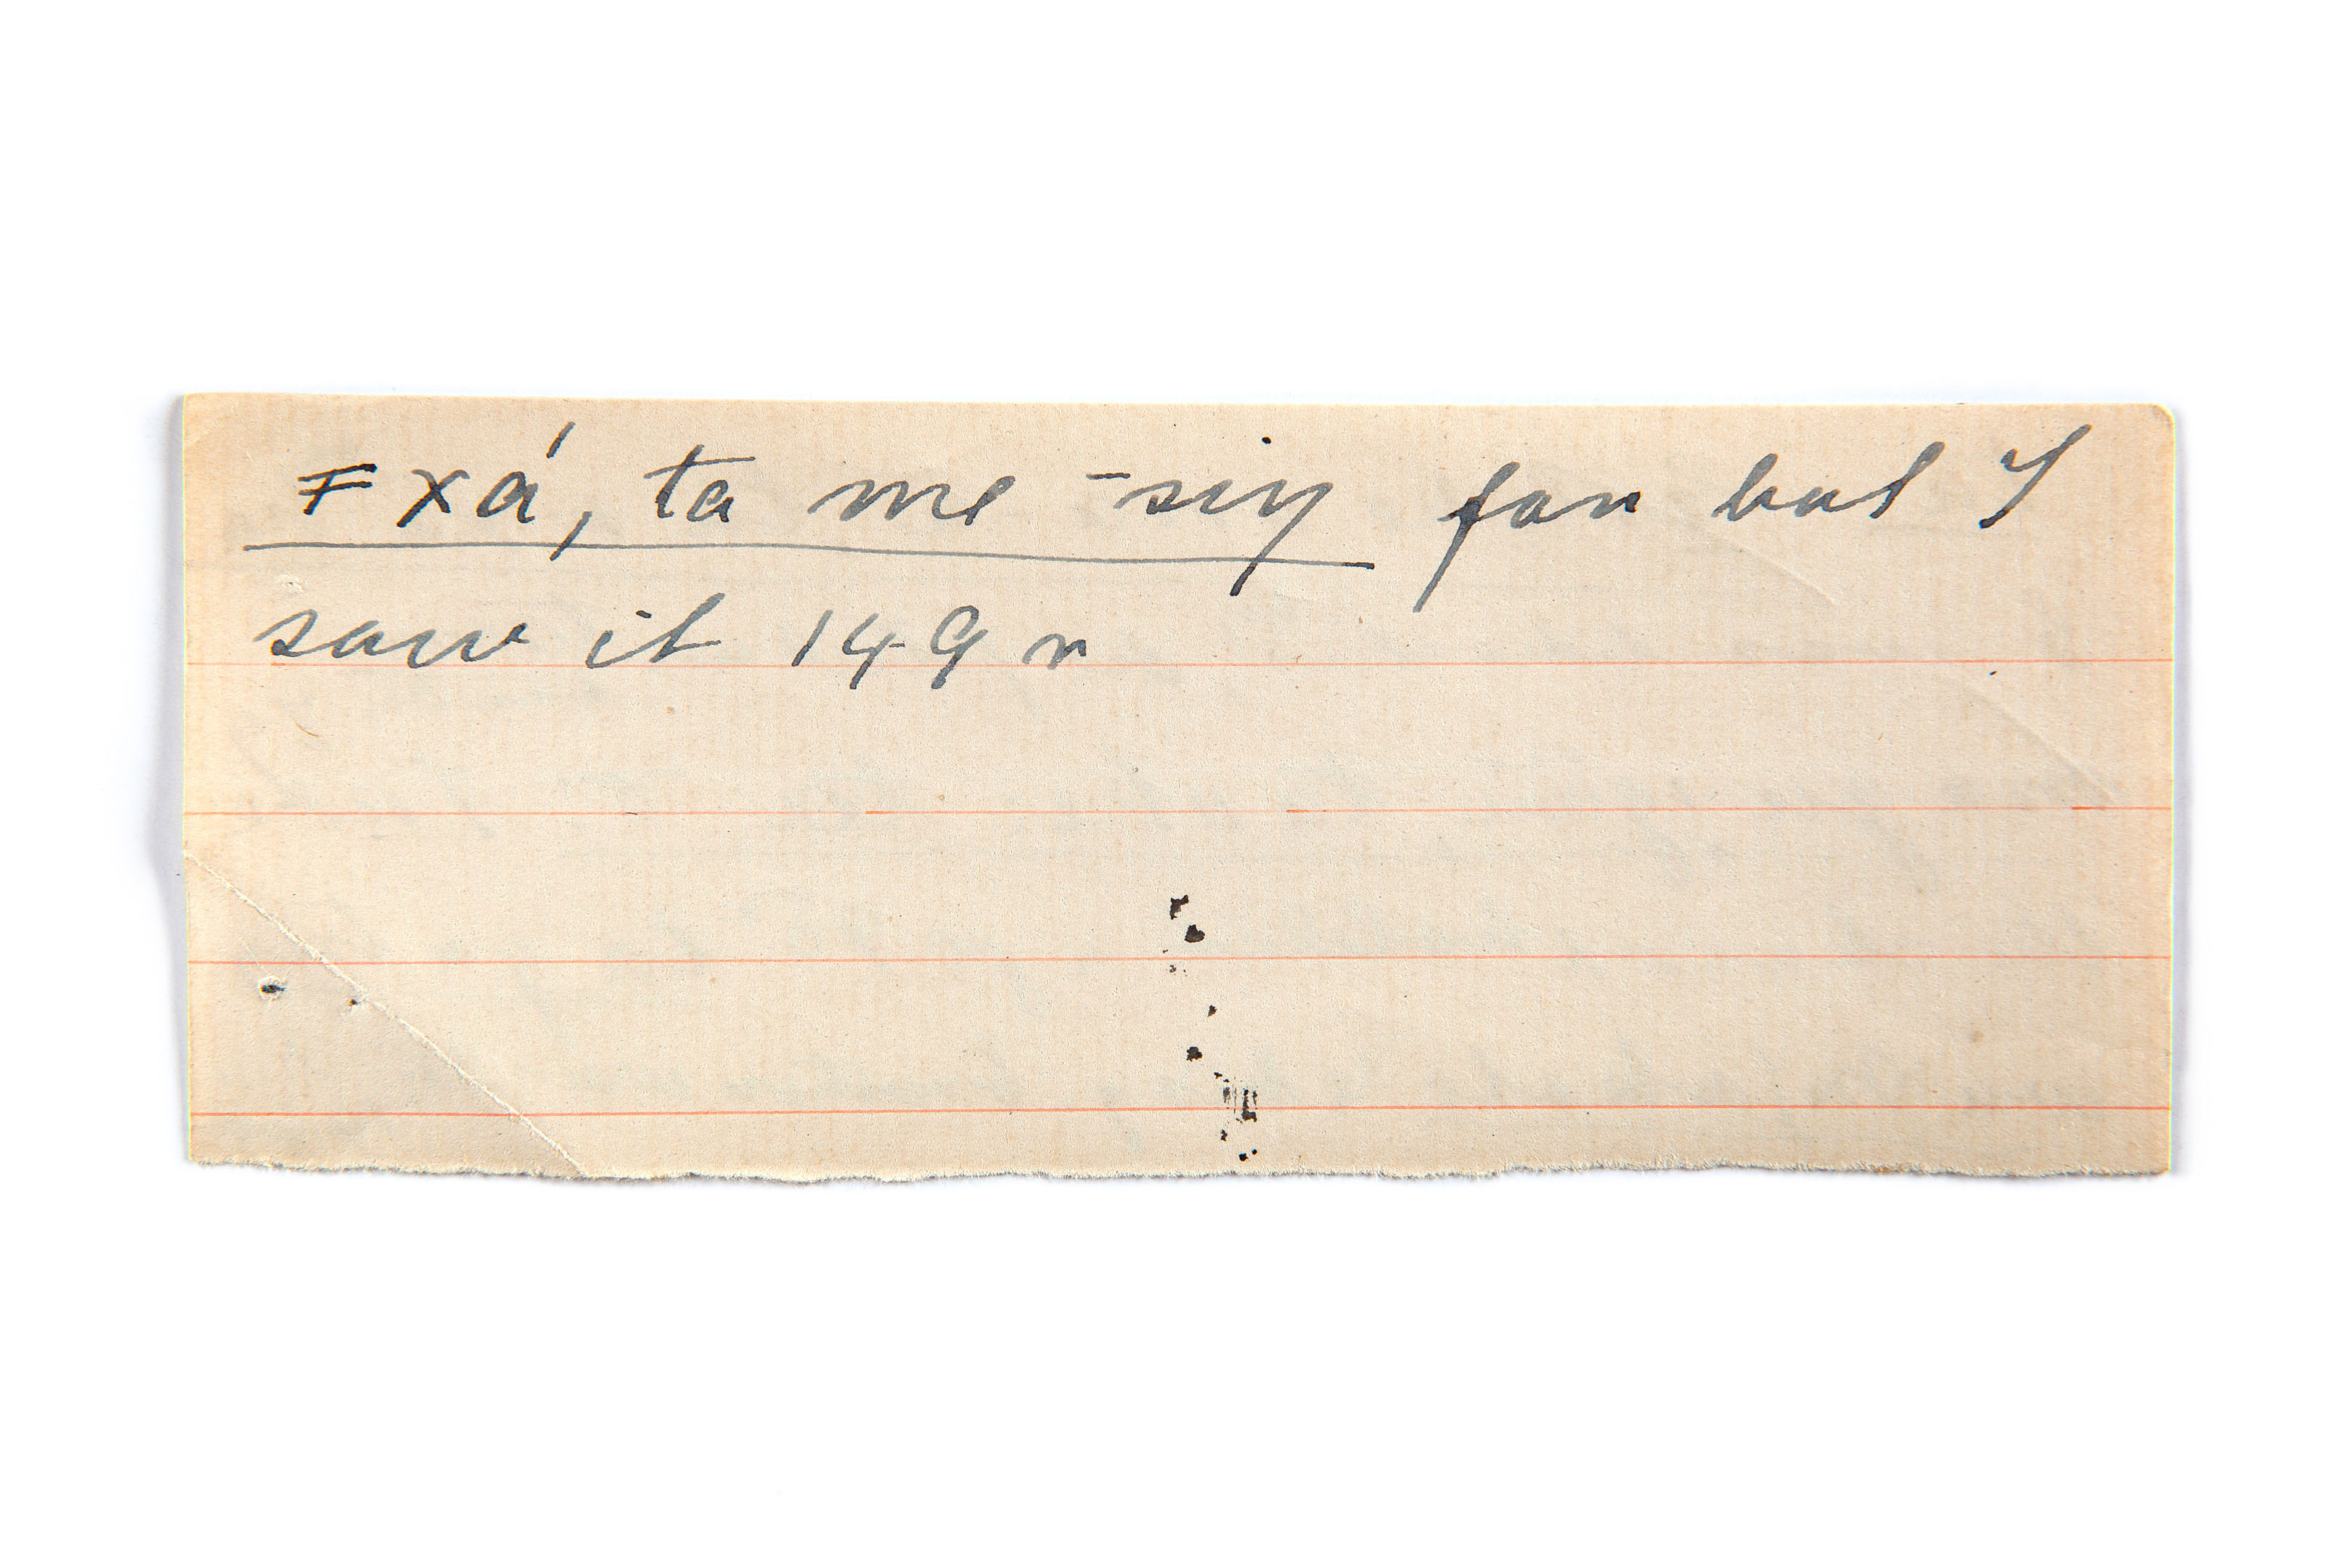 ≠ xá, ta me -siŋ fan but I
saw it 149 r